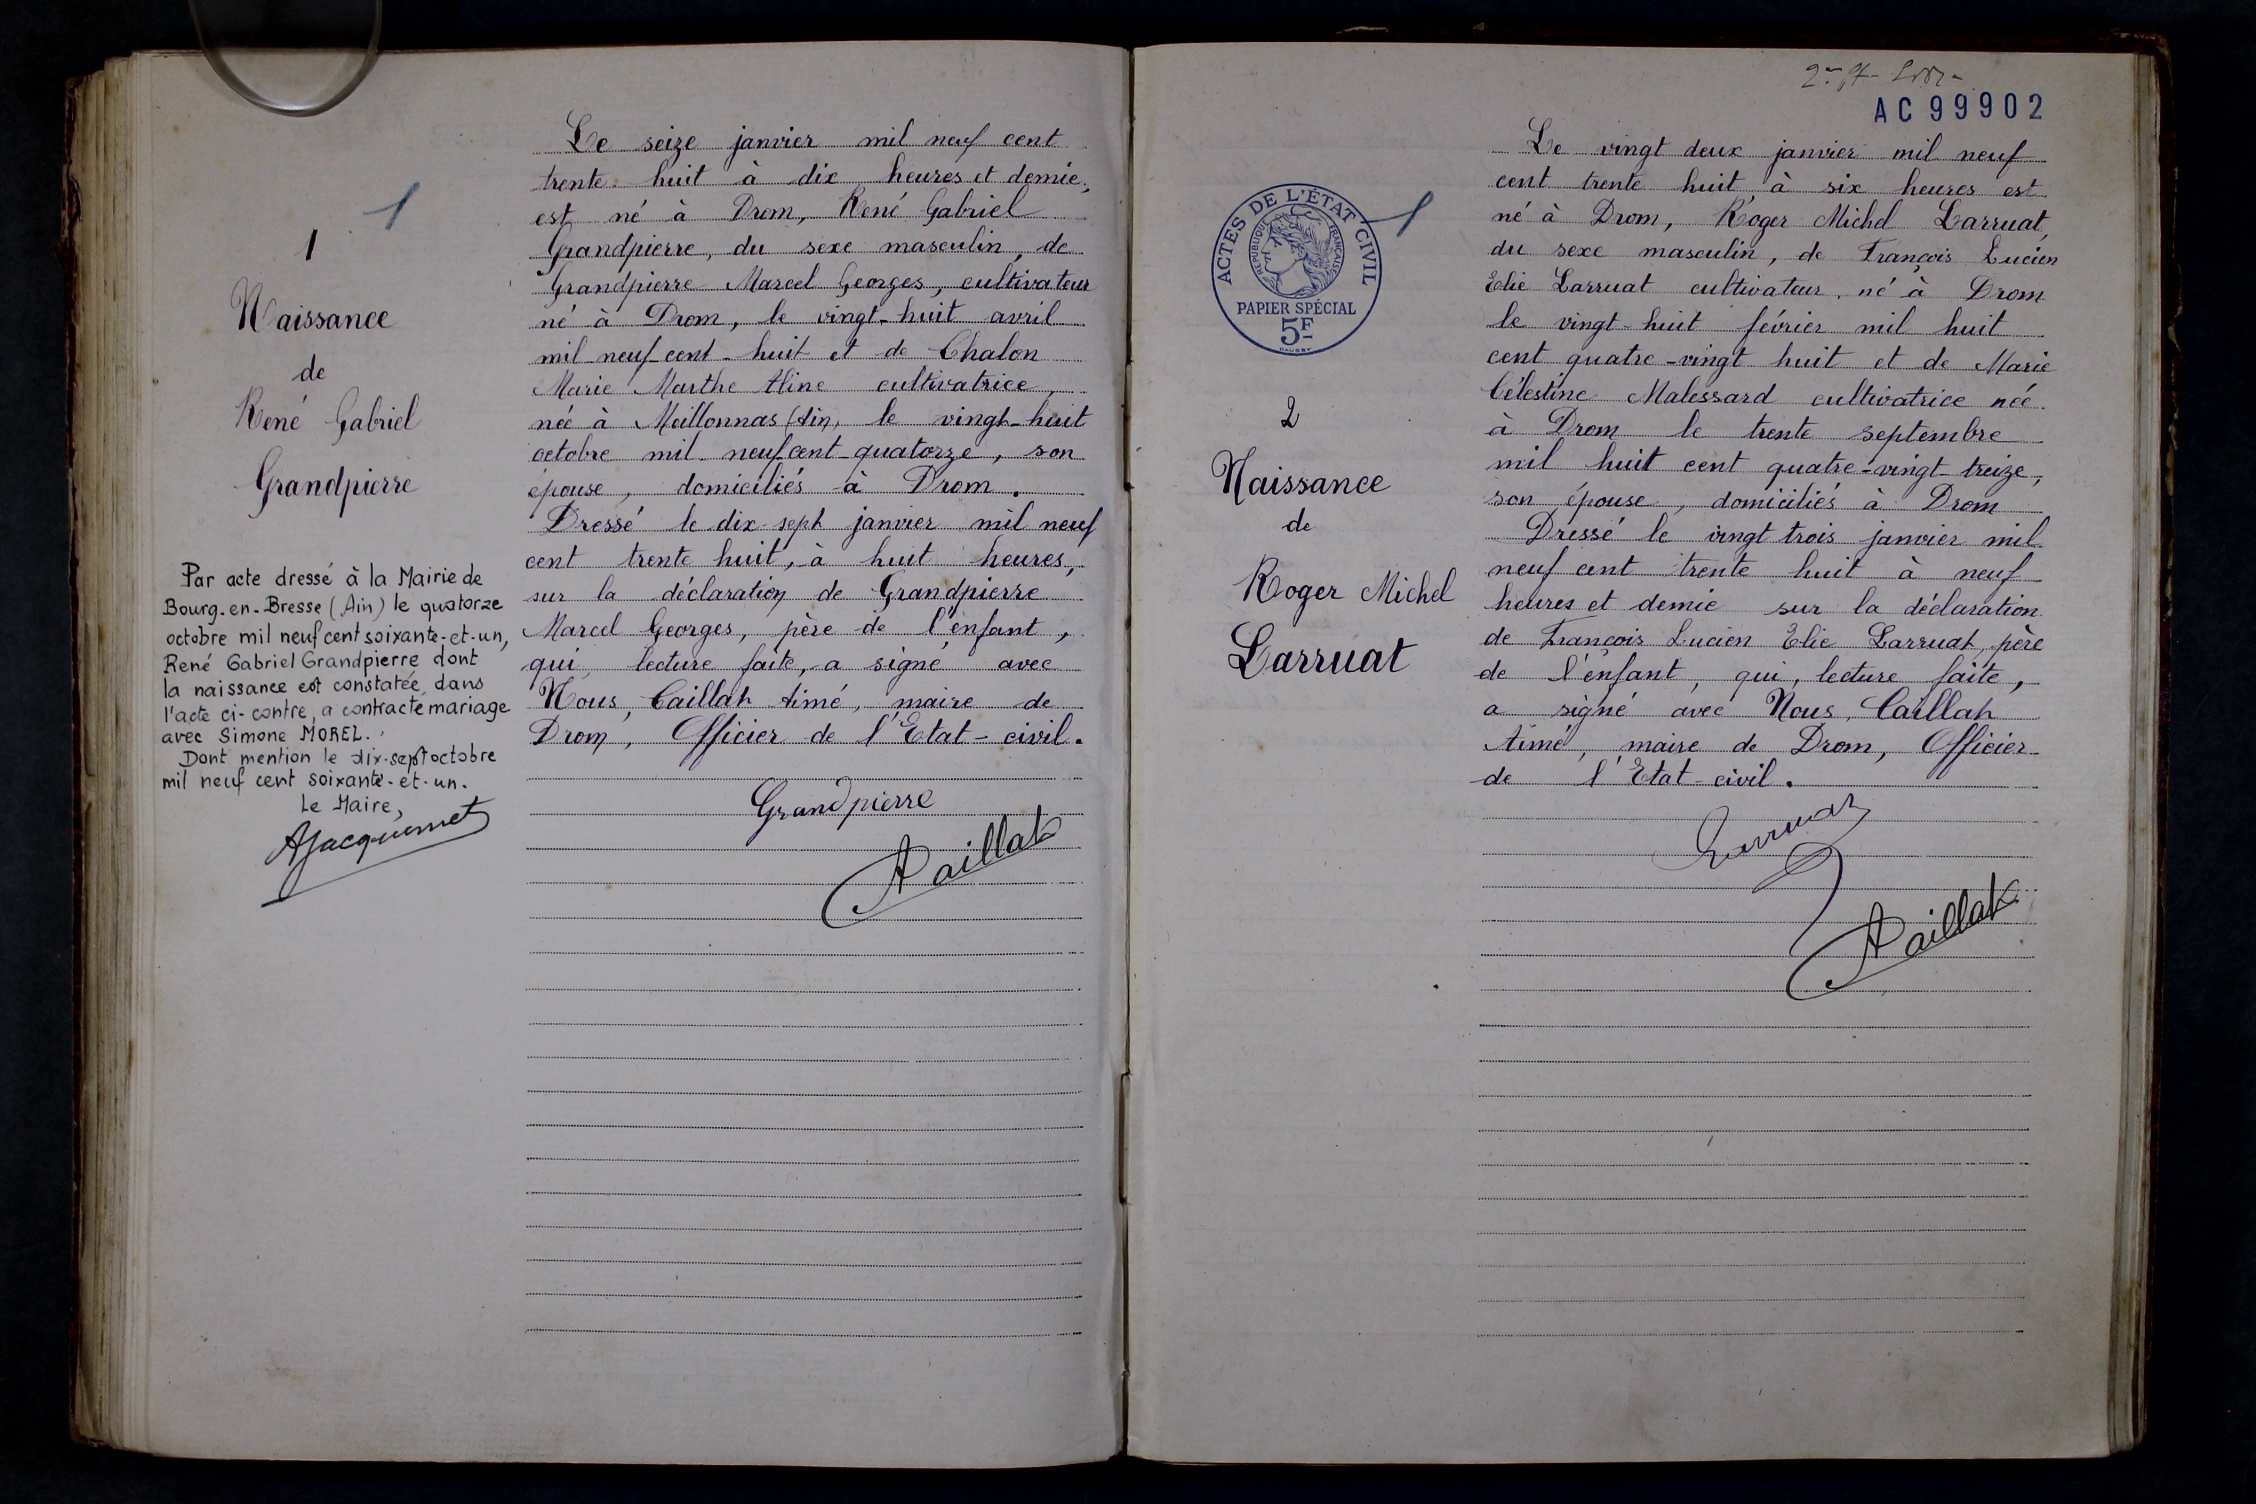 1
1
Naissance
de
René Gabriel
Grandpierre
Par acte dressé à la Mairie de
Bourg-en-Bresse (Ain) le quatorze
octobre mil neuf cent soixante-et-un,
René Gabriel Grandpierre dont
la naissance est constatée dans
l'acte ci-contre, a contracté mariage
avec Simone MOREL.
Dont mention le dix-sept octobre
mil neuf cent soixante-et-un.
Le Maire,
AJacquemet
Le seize janvier mil neuf cent
trente huit à dix heures et demie,
est né à Drom, René Gabriel
Grandpierre, du sexe masculin, de
Grandpierre Marcel Georges, cultivateur
né à Drom, le vingt-huit avril
mil neuf cent-huit et de Chalon
Marie Marthe Aline cultivatrice,
née à Meillonnas (Ain, le vingt-huit
octobre mil neuf cent-quatorze, son
épouse, domiciliés à Drom.
Dressé le dix-sept janvier mil neuf
cent trente huit, à huit heures,
sur la déclaration de Grandpierre
Marcel Georges, père de l'enfant,
qui, lecture faite, a signé avec
Nous, Caillat Aimé, maire de
Drom, Officier de l'Etat-civil.
Grandpierre
ACaillat
AC 99902
ACTES DE L'ÉTAT CIVIL
RÉPUBLIQUE FRANÇAISE
PAPIER SPÉCIAL
5F
1
2
Naissance
de
Roger Michel
Larruat
Le vingt deux janvier mil neuf
cent trente huit à six heures est
né à Drom, Roger Michel Larruat,
du sexe masculin, de François Lucien
Elie Larruat cultivateur, né à Drom
le vingt-huit février mil huit
cent quatre-vingt huit et de Marie
Célestine Malessard cultivatrice née
à Drom le trente septembre
mil huit cent quatre-vingt treize,
son épouse, domiciliés à Drom
Dressé le vingt trois janvier mil
neuf cent trente huit à neuf
heures et demie sur la déclaration
de François Lucien Elie Larruat, père
de l'enfant, qui, lecture faite,
a signé avec Nous, Caillat
Aimé, maire de Drom, Officier
de l'Etat-civil.
Larruat
ACaillat